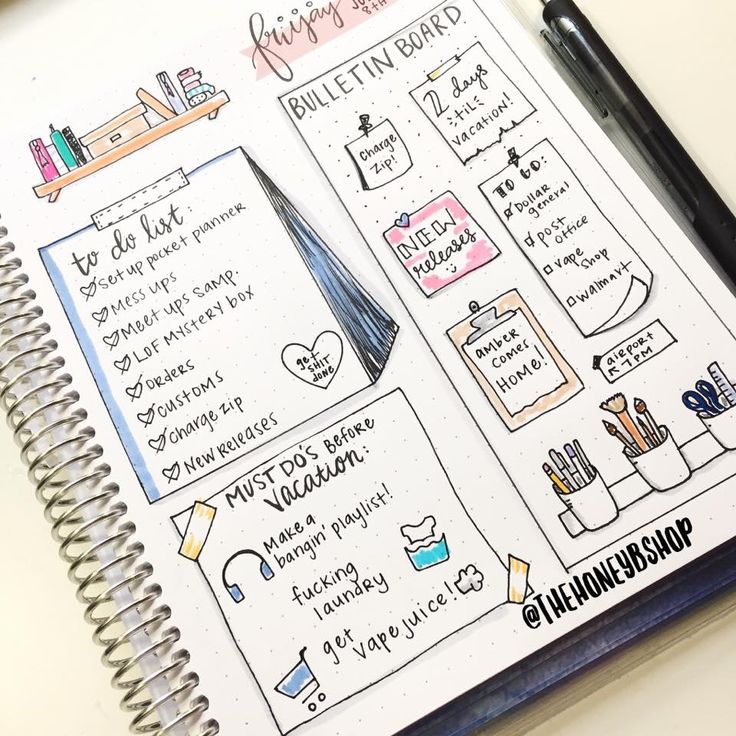 friyay
8TH
to do list
set up pocket planner
Mess ups
Meet ups samp.
LOF Mystery box
Orders
customs
Charge zip
New Releases
get
SHIT
DONE
MUST DO'S BEFORE
Vacation:
Make a
bangin' playlist!
fucking
laundry
get
vape juice!
BULLETIN BOARD
Charge
zip!
12 days
'til
vacation!
NEW
releases
TO GO:
Dollar
general
post
office
vape
shop
walmart
amber
comes
HOME!
airport
7 PM
@THEHONEYBSHOP